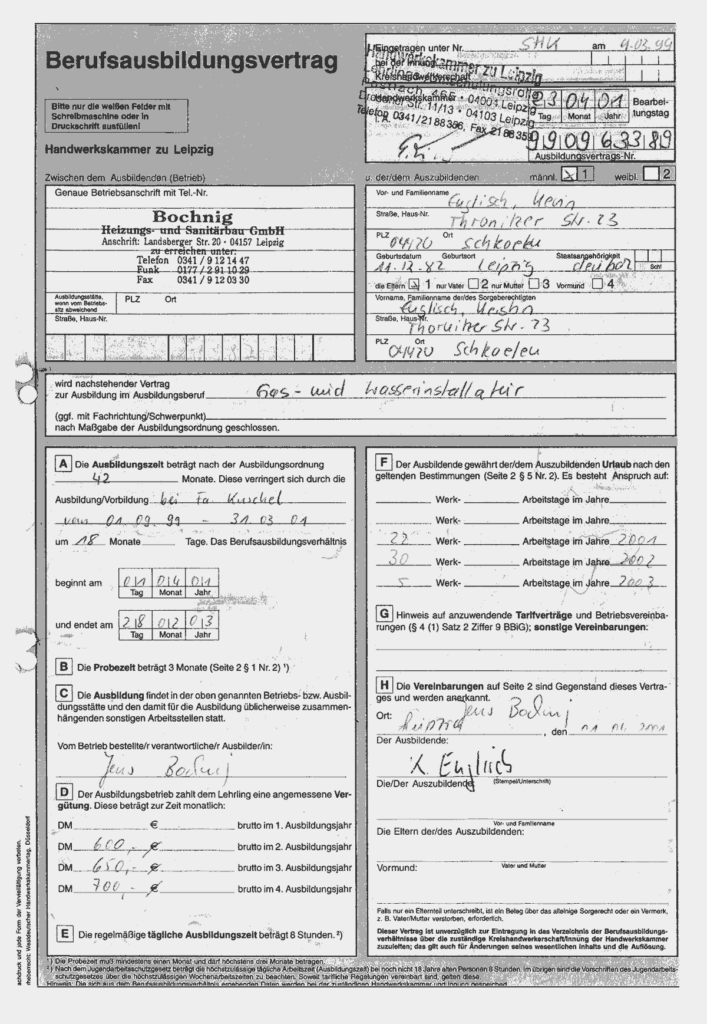 Berufsausbildungsvertrag
Bitte nur die weißen Felder mit
Schreibmaschine oder in
Druckschrift ausfüllen!
Handwerkskammer zu Leipzig
Eingetragen unter Nr. SHK am 9.03.99
bei der Innung
Kreishandwerkerschaft
Handwerkskammer zu Leipzig
Postfach 465 · 04001 Leipzig
Dresdener Str. 11/13 · 04103 Leipzig
Telefon 0341/2188356, Fax 2188359
23 04 01 Bearbei-
Tag Monat Jahr tungstag
990963389
Ausbildungsvertrags-Nr.
Zwischen dem Ausbildenden (Betrieb)
u. der/dem Auszubildenden männl. X 1 weibl. 2
Genaue Betriebsanschrift mit Tel.-Nr.
Bochnig
Heizungs- und Sanitärbau GmbH
Anschrift: Landsberger Str. 20 · 04157 Leipzig
zu erreichen unter:
Telefon 0341 / 9 12 14 47
Funk 0177 / 2 91 10 29
Fax 0341 / 9 12 03 30
Ausbildungsstätte,
wenn vom Betriebs-
sitz abweichend
PLZ Ort
Straße, Haus-Nr.
Vor- und Familienname
Englisch,
Straße, Haus-Nr.
Thronitzer Str. 23
PLZ Ort
04420
Geburtsdatum Geburtsort Staatsangehörigkeit
11.12.82 Leipzig deutsch
Schl
die Eltern 1 nur Vater 2 nur Mutter 3 Vormund 4
Vorname, Familienname der/des Sorgeberechtigten
Englisch,
Straße, Haus-Nr.
Str. 23
PLZ Ort
04420
wird nachstehender Vertrag
zur Ausbildung im Ausbildungsberuf Gas- und Wasserinstallatür
(ggf. mit Fachrichtung/Schwerpunkt)
nach Maßgabe der Ausbildungsordnung geschlossen.
A Die Ausbildungszeit beträgt nach der Ausbildungsordnung
42 Monate. Diese verringert sich durch die
Ausbildung/Vorbildung bei Fa. Kuschel
vom 01.09.99 - 31.03.01
um 18 Monate Tage. Das Berufsausbildungsverhältnis
beginnt am 01 04 01
Tag Monat Jahr
und endet am 28 02 03
Tag Monat Jahr
B Die Probezeit beträgt 3 Monate (Seite 2 § 1 Nr. 2) ¹)
C Die Ausbildung findet in der oben genannten Betriebs- bzw. Ausbil-
dungsstätte und den damit für die Ausbildung üblicherweise zusammen-
hängenden sonstigen Arbeitsstellen statt.
Vom Betrieb bestellte/r verantwortliche/r Ausbilder/in:
Jens
D Der Ausbildungsbetrieb zahlt dem Lehrling eine angemessene Ver-
gütung. Diese beträgt zur Zeit monatlich:
DM € brutto im 1. Ausbildungsjahr
DM 600,- € brutto im 2. Ausbildungsjahr
DM 650,- € brutto im 3. Ausbildungsjahr
DM 700,- € brutto im 4. Ausbildungsjahr
E Die regelmäßige tägliche Ausbildungszeit beträgt 8 Stunden. ²)
F Der Ausbildende gewährt der/dem Auszubildenden Urlaub nach den
geltenden Bestimmungen (Seite 2 § 5 Nr. 2). Es besteht Anspruch auf:
Werk- Arbeitstage im Jahre
Werk- Arbeitstage im Jahre
22 Werk- Arbeitstage im Jahre 2001
30 Werk- Arbeitstage im Jahre 2002
5 Werk- Arbeitstage im Jahre 2003
G Hinweis auf anzuwendende Tarifverträge und Betriebsvereinba-
rungen (§ 4 (1) Satz 2 Ziffer 9 BBiG); sonstige Vereinbarungen:
H Die Vereinbarungen auf Seite 2 sind Gegenstand dieses Vertra-
ges und werden anerkannt.
Ort: Leipzig, den 01.01.2001
Der Ausbildende: Jens
K. Englisch
(Stempel/Unterschrift)
Die/Der Auszubildende:
Vor- und Familienname
Die Eltern der/des Auszubildenden:
Vater und Mutter
Vormund:
Falls nur ein Elternteil unterschreibt, ist ein Beleg über das alleinige Sorgerecht oder ein Vermerk,
z. B. Vater/Mutter verstorben, erforderlich.
Dieser Vertrag ist unverzüglich zur Eintragung in das Verzeichnis der Berufsausbildungs-
verhältnisse über die zuständige Kreishandwerkerschaft/Innung der Handwerkskammer
zuzuleiten; das gilt auch für Änderungen seines wesentlichen Inhalts und die Auflösung.
¹) Die Probezeit muß mindestens einen Monat und darf höchstens drei Monate betragen.
²) Nach dem Jugendarbeitsschutzgesetz beträgt die höchstzulässige tägliche Arbeitszeit (Ausbildungszeit) bei noch nicht 18 Jahre alten Personen 8 Stunden. Im übrigen sind die Vorschriften des Jugendarbeits-
schutzgesetzes über die höchstzulässigen Wochenarbeitszeiten zu beachten. Soweit tarifliche Regelungen vereinbart sind, gelten diese.
Hinweis: Die sich aus dem Berufsausbildungsvertrag ergebenden Daten werden bei der zuständigen Handwerkskammer und Innung gespeichert.
achdruck und jede Form der Vervielfältigung verboten.
rheberrecht: Westdeutscher Handwerkskammertag, Düsseldorf